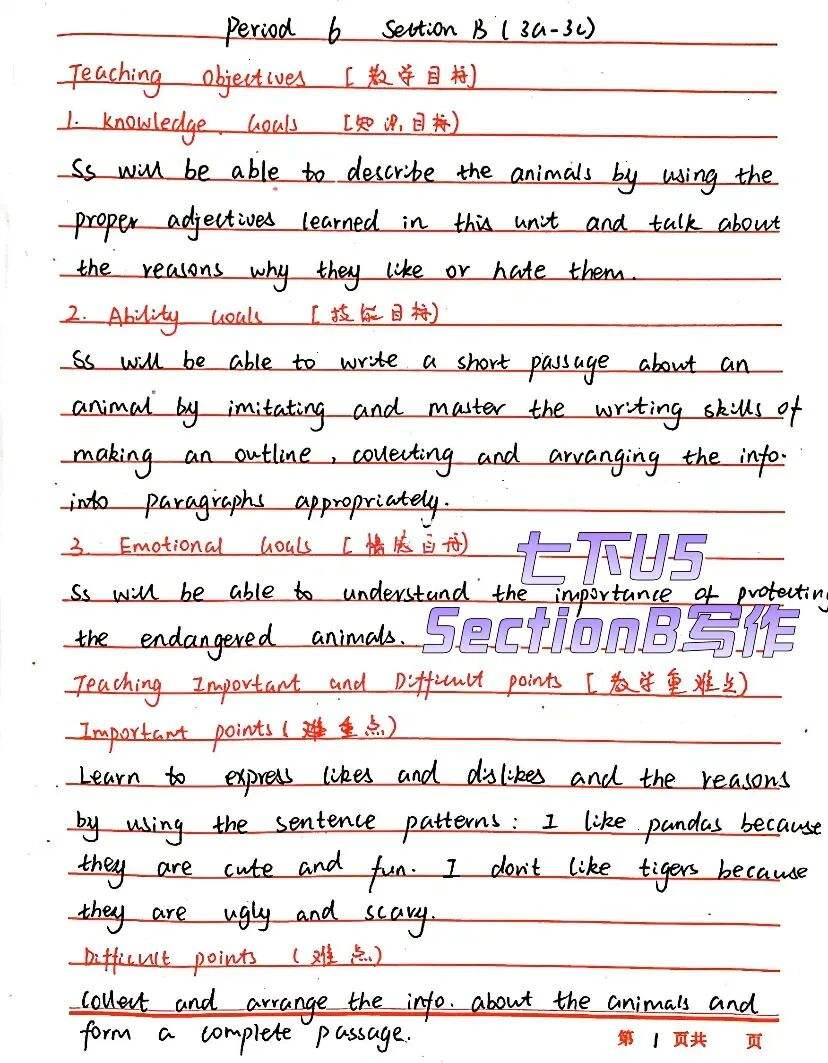 Period 6 Section B (3a-3c)
Teaching Objectives [教学目标]
1. Knowledge Goals [知识目标]
Ss will be able to describe the animals by using the
proper adjectives learned in this unit and talk about
the reasons why they like or hate them.
2. Ability Goals [技能目标]
Ss will be able to write a short passage about an
animal by imitating and master the writing skills of
making an outline, collecting and arranging the info.
into paragraphs appropriately.
3. Emotional Goals [情感目标]
七下U5
Ss will be able to understand the importance of protecting
the endangered animals.
SectionB写作
Teaching Important and Difficult points [教学重难点]
Important points (重点)
Learn to express likes and dislikes and the reasons
by using the sentence patterns: I like pandas because
they are cute and fun. I don't like tigers because
they are ugly and scary.
Difficult points (难点)
Collect and arrange the info. about the animals and
form a complete passage.
第 1 页共 页